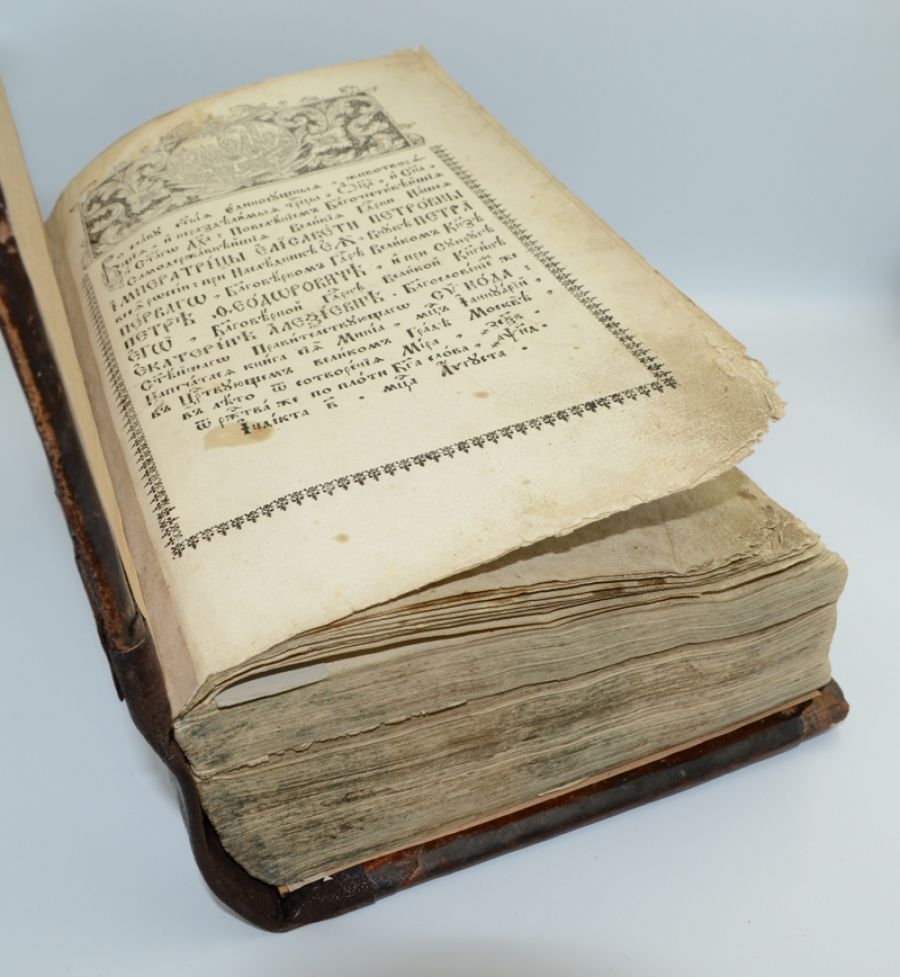 Во славу ст҃ыя єдиносущныя , животворѧ-
щїѧ , и нераздѣлимыя трⷪ҇цы , Ѻц҃а , и Сн҃а ,
и Ст҃агѡ Дх҃а : Повелѣнїемъ Благочестивѣйшїѧ
Самодержавнѣйшїѧ Великїѧ Гдⷭ҇рни Нашеѧ
ІМПЕРАТРІ́ЦЫ ЕЛІСАВЕТИ ПЕТРОВНЫ
всеѧ рѡссіи : при Наслѣдникѣ ЕѦ , Внꙋкѣ ПЕТРА
ПЕРВАГѠ , Благовѣрномъ Гдⷭ҇рѣ Великомъ Кнѧзѣ
ПЕТРѢ ѲЕОДѠРОВИЧѢ , и при Сꙋпрꙋгѣ
ЕГѠ , Благовѣрной Гдⷭ҇рнѣ Великой Кнѧгинѣ
ЕКАТЕРІНѢ АЛЕѮІЕВНѢ . Благословенїемъ же
Ст҃ѣйшагѡ Правительствꙋющагѡ СѴНОДА :
Напечатасѧ книга сїѧ Минїа , мцⷭ҇ъ Іаннꙋарїй
въ Црⷭ҇твꙋющемъ великомъ Градѣ Москвѣ ,
въ лѣто ѿ сотворенїѧ Мїра ,
ѿ ржⷭ҇тва же по плоти Бг҃а слова , ҂аѱн҃д .
Індікта в҃ . мцⷭ҇а Аѵгꙋста .